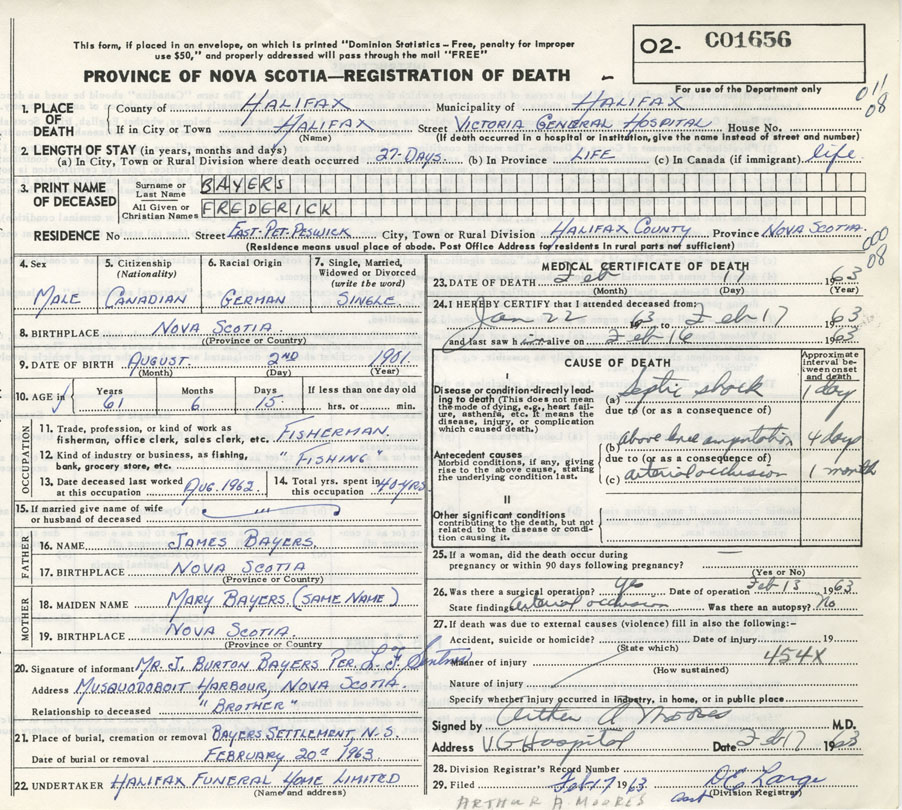 This form, if placed in an envelope, on which is printed "Dominion Statistics – Free, penalty for improper
use $50," and properly addressed will pass through the mail "FREE"
O2- C01656
PROVINCE OF NOVA SCOTIA—REGISTRATION OF DEATH
For use of the Department only
011
08
1. PLACE OF DEATH
County of HALIFAX Municipality of HALIFAX
If in City or Town HALIFAX Street VICTORIA GENERAL HOSPITAL House No.
(Name) (If death occurred in a hospital or institution, give the name instead of street and number)
2. LENGTH OF STAY (in years, months and days)
(a) In City, Town or Rural Division where death occurred 27-DAYS. (b) In Province LIFE (c) In Canada (if immigrant) life
3. PRINT NAME OF DECEASED
Surname or Last Name BAYERS
All Given or Christian Names FREDERICK
RESIDENCE No Street EAST-PET-PESWICK City, Town or Rural Division HALIFAX COUNTY Province NOVA SCOTIA.
(Residence means usual place of abode. Post Office Address for residents in rural parts not sufficient)
000
08
4. Sex MALE
5. Citizenship (Nationality) CANADIAN
6. Racial Origin GERMAN
7. Single, Married, Widowed or Divorced (write the word) SINGLE.
8. BIRTHPLACE NOVA SCOTIA.
(Province or Country)
9. DATE OF BIRTH AUGUST 2ND 1901.
(Month) (Day) (Year)
10. AGE in Years 61 Months 6 Days 15 If less than one day old hrs. or min.
OCCUPATION
11. Trade, profession, or kind of work as
fisherman, office clerk, sales clerk, etc. FISHERMAN.
12. Kind of industry or business, as fishing,
bank, grocery store, etc. "FISHING"
13. Date deceased last worked
at this occupation AUG. 1962.
14. Total yrs. spent in
this occupation 40-YRS
15. If married give name of wife
or husband of deceased
FATHER
16. NAME JAMES BAYERS.
17. BIRTHPLACE NOVA SCOTIA
(Province or Country)
MOTHER
18. MAIDEN NAME MARY BAYERS. (SAME NAME)
19. BIRTHPLACE NOVA SCOTIA.
(Province or Country)
20. Signature of informant MR. J. BURTON BAYERS PER. L. F.
Address MUSQUODOBOIT HARBOUR, NOVA SCOTIA.
Relationship to deceased "BROTHER"
21. Place of burial, cremation or removal BAYERS SETTLEMENT, N.S.
Date of burial or removal FEBRUARY 20th 1963
22. UNDERTAKER HALIFAX FUNERAL HOME LIMITED
(Name and address)
MEDICAL CERTIFICATE OF DEATH
23. DATE OF DEATH Feb 17 1963
(Month) (Day) (Year)
24. I HEREBY CERTIFY that I attended deceased from:
Jan 22 1963 to Feb 17 1963
and last saw him alive on Feb 16 1963
CAUSE OF DEATH
Approximate interval between onset and death
I
Disease or condition directly leading to death (This does not mean the mode of dying, e.g., heart failure, asthenia, etc. It means the disease, injury, or complication which caused death.)
(a) Septic shock 1 day
due to (or as a consequence of)
Antecedent causes
Morbid conditions, if any, giving rise to the above cause, stating the underlying condition last.
(b) above knee amputation 4 days
due to (or as a consequence of)
(c) arterial occlusion 1 month
II
Other significant conditions
contributing to the death, but not related to the disease or condition causing it.
25. If a woman, did the death occur during
pregnancy or within 90 days following pregnancy?
(Yes or No)
26. Was there a surgical operation? yes Date of operation Feb 13 1963
State findings arterial occlusion Was there an autopsy? No
27. If death was due to external causes (violence) fill in also the following:-
Accident, suicide or homicide? Date of injury 19
(State which)
Manner of injury 454X
(How sustained)
Nature of injury
Specify whether injury occurred in industry, in home, or in public place
Signed by Arthur A Moores M.D.
Address V G Hospital Date Feb 17 1963
28. Division Registrar's Record Number
29. Filed Feb 17 1963 D.E. Large
(Division Registrar)
ARTHUR A. MOORES